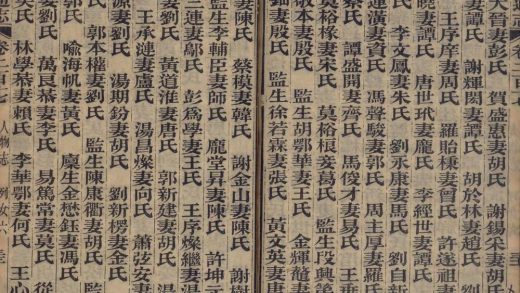 大晉妻彭氏 賀盛惠妻胡氏 謝錫采妻胡氏
妻譚氏 謝輝閎妻譚氏 胡於林妻趙氏
王序庠妻周氏 羅貽棟妻曾氏 許遂祖妻
妻譚氏 唐世玳妻龐氏 李經世妻譚氏
李文鳳妻朱氏 劉永康妻馬氏 劉自新
連演妻賀氏 馮聲駿妻郭氏 周主厚妻羅氏
蔡氏 譚盛開妻齊氏 馬俊才妻易氏
莫裕椽妻宋氏 莫裕桓妾葛氏 監生段興第
妻殷氏 監生胡鄂華妻王氏 金輝鼇妻
鈿妻殷氏 監生徐若霖妻張氏 黃文英妻唐
妻陳氏 蔡模妻韓氏 謝金山妻陳氏 謝樹
監生李輔臣妻師氏 龐堂昇妻陳氏 許坤元
三連妻鄢氏 彭爲學妻王氏 王序燦繼妻
妻劉氏 黃道淮妻唐氏 郭新建妻胡氏
王承漣妻盧氏 湯昌燦妻向氏 蕭弦安妻
源妻劉氏 湯期紛妻胡氏 劉新樑妻金氏
郭本權妻劉氏 監生陳康衢妻胡氏
喻海帆妻黃氏 廩生金懋鈺妻馮氏
萬艮棻妻李氏 易篤常妻莫氏
吳氏 林學棻妻賴氏 李華鄂妻何氏 王心
通志 卷二百七 人物志 列女六 三